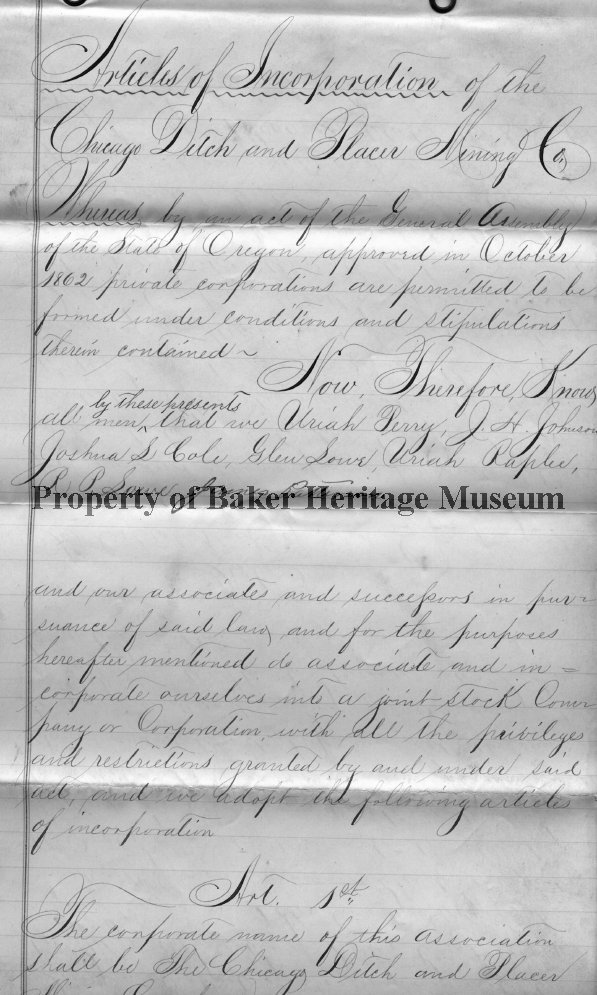 Articles of Incorporation of the
Chicago Ditch and Placer Mining Co.
Whereas by an act of the General Assembly
of the State of Oregon, approved in October
1862 private corporations are permitted to be
formed under conditions and stipulations
therein contained ~
Now, Therefore, Know
by these presents
all men ^ that we Uriah Perry, J. H. Johnson
Joshua S Cole, Glen Lowe, Uriah Raplee,
R. P. Lowe
Property of Baker Heritage Museum
and our associates and successors in pur=
suance of said law, and for the purposes
hereafter mentioned do associate and in=
corporate ourselves into a joint stock Com-
pany or Corporation, with all the privileges
and restrictions granted by and under said
act, and we adopt the following articles
of incorporation
Art. 1st
The corporate name of this association
shall be The Chicago Ditch and Placer